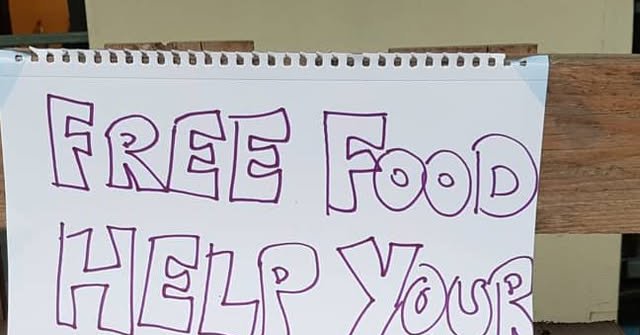 FREE FOOD
HELP YOUR